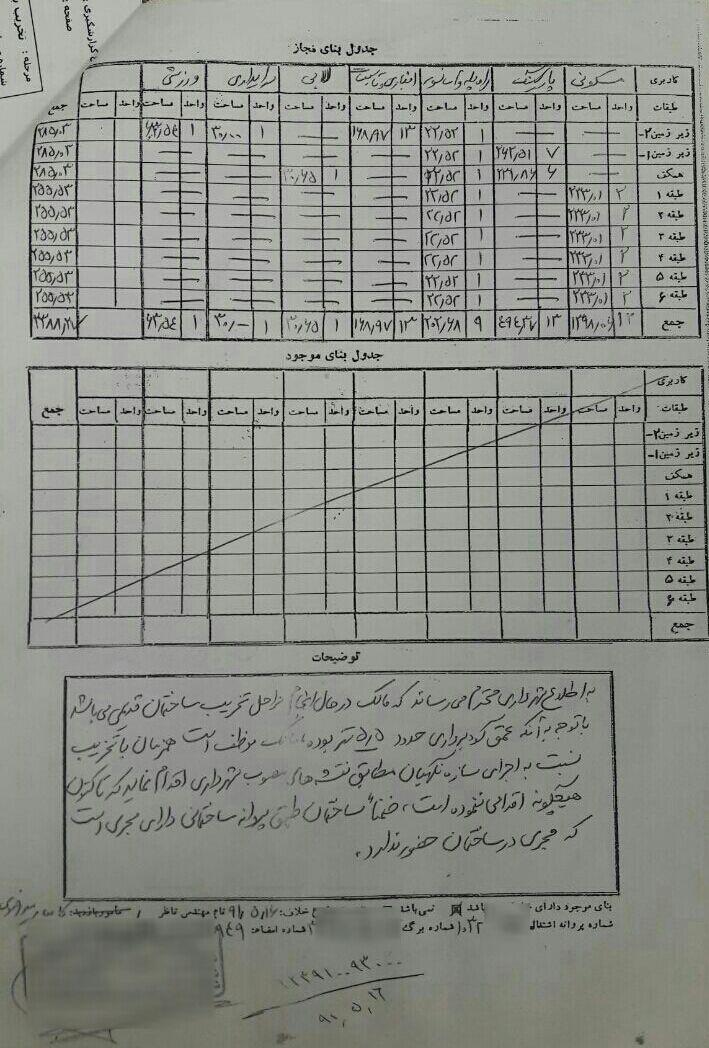 گزارشگیری
صفحه
مرحله : تخریب
شماره
جدول بنای مجاز
کاربری مسکونی پارکینگ راه پله و آسانسور انباری و تاسیسات لابی سرایداری ورزشی
طبقات واحد مساحت واحد مساحت واحد مساحت واحد مساحت واحد مساحت واحد مساحت واحد مساحت واحد مساحت جمع
زیر زمین ۲- — — ۱ ۲۲٫۵۲ ۱۳ ۱۶۸٫۹۷ — ۱ ۳۰٫۰۰ ۱ ۶۳٫۵۴ ۲۸۵٫۰۳
زیر زمین ۱- — ۷ ۲۶۲٫۵۱ ۱ ۲۲٫۵۲ — — — — ۲۸۵٫۰۳
همکف — ۶ ۲۳۱٫۸۶ ۱ ۲۲٫۵۲ — ۱ ۳۰٫۶۵ — — ۲۸۵٫۰۳
طبقه ۱ ۲ ۲۳۳٫۰۱ — ۱ ۲۲٫۵۲ — — — — ۲۵۵٫۵۳
طبقه ۲ ۲ ۲۳۳٫۰۱ — ۱ ۲۲٫۵۲ — — — — ۲۵۵٫۵۳
طبقه ۳ ۲ ۲۳۳٫۰۱ — ۱ ۲۲٫۵۲ — — — — ۲۵۵٫۵۳
طبقه ۴ ۲ ۲۳۳٫۰۱ — ۱ ۲۲٫۵۲ — — — — ۲۵۵٫۵۳
طبقه ۵ ۲ ۲۳۳٫۰۱ — ۱ ۲۲٫۵۲ — — — — ۲۵۵٫۵۳
طبقه ۶ ۲ ۲۳۳٫۰۱ — ۱ ۲۲٫۵۲ — — — — ۲۵۵٫۵۳
جمع ۱۲ ۱۳۹۸٫۰۶ ۱۳ ۴۹۴٫۳۷ ۹ ۲۰۲٫۶۸ ۱۳ ۱۶۸٫۹۷ ۱ ۳۰٫۶۵ ۱ ۳۰٫۰ ۱ ۶۳٫۵۴ ۲۳۸۸٫۲۷
جدول بنای موجود
کاربری
طبقات واحد مساحت واحد مساحت واحد مساحت واحد مساحت واحد مساحت واحد مساحت واحد مساحت واحد مساحت جمع
زیر زمین ۲-
زیر زمین ۱-
همکف
طبقه ۱
طبقه ۲
طبقه ۳
طبقه ۴
طبقه ۵
طبقه ۶
جمع
توضیحات
به اطلاع شهرداری محترم می رساند که مالک در حال انجام مراحل تخریب ساختمان قدیمی می باشد
با توجه به آنکه عمق گودبرداری حدود ۵٫۵ متر بوده مالک موظف است همزمان با تخریب
نسبت به اجرای سازه نگهبان مطابق نقشه های مصوب شهرداری اقدام نماید که تاکنون
هیچگونه اقدامی ننموده است، ضمناً ساختمان طبق پروانه ساختمانی دارای مجری است
که مجری در ساختمان حضور ندارد.
بنای موجود دارای باشد نمی باشد خلاف: ۹۱٫۵٫۱۶ نام مهندس ناظر مامور بازدید:
شماره پروانه اشتغال ۳۲ شماره برگ شماره امضاء: ۹۴۹
۱۲۳۹۱۰۰۹۳۰۰۰
۹۱٫۵٫۱۶